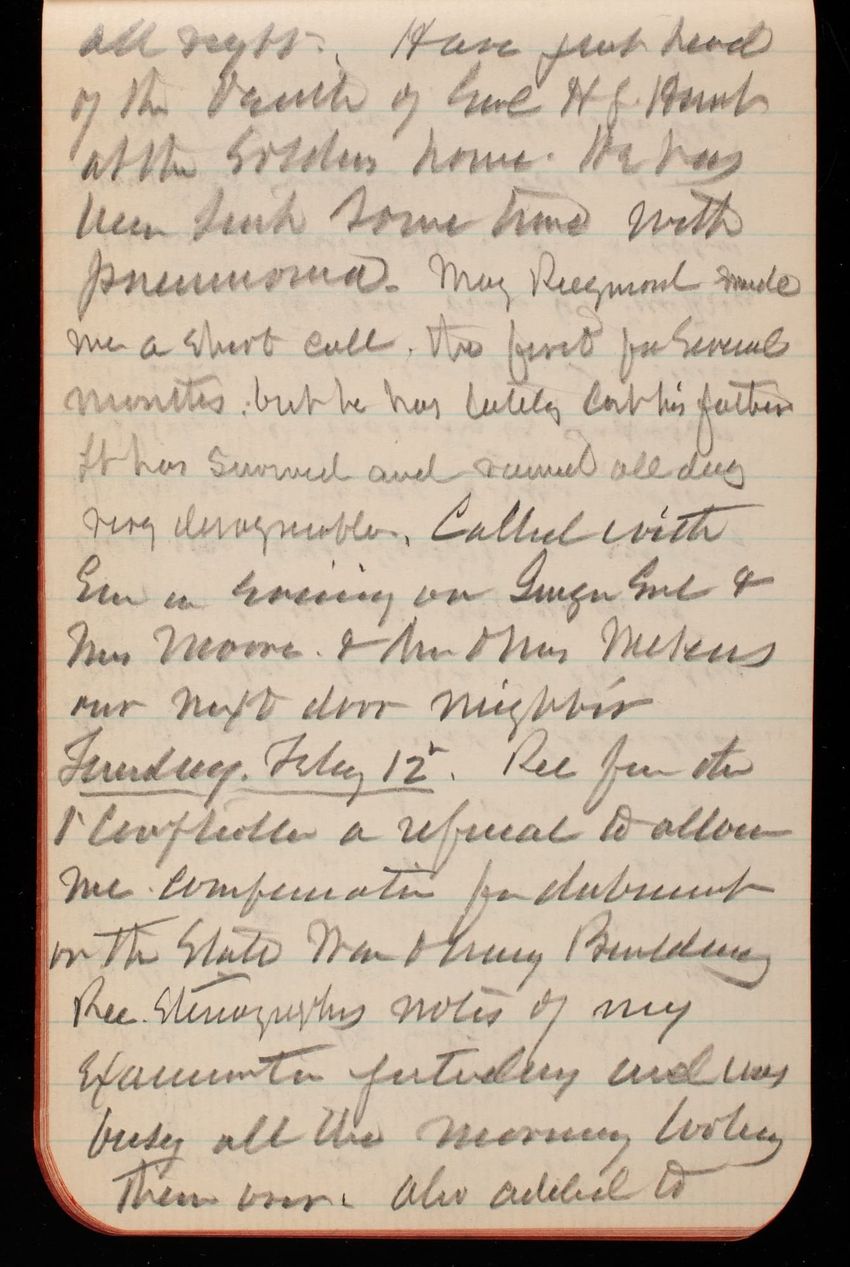 all right. Have just heard
of the Death of Genl H J. Hunt
at the Soldiers home. He has
been sick some time with
pneumonia. Maj Raymond made
me a short call. the first for several
months, but he has lately lost his father
It has snowed and rained all day
very disagreeable. Called with
Em in evening on Genl &
Mrs Moore. & Mr & Mrs
our next door neighbor
Tuesday. Feby 12". Rec from the
1st Comptroller a refusal to allow
me compensation for disbursements
on the State War & Navy Building
Rec. Stenographers notes of my
Examination yesterday and was
busy all the morning looking
them over. Also added to